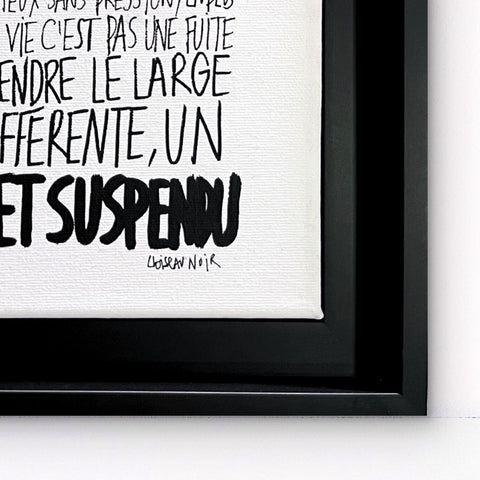 SANS PRESSION,
VIE C'EST PAS UNE FUITE
ENDRE LE LARGE
FFÉRENTE, UN
ET SUSPENDU
L'OISEAU NOIR